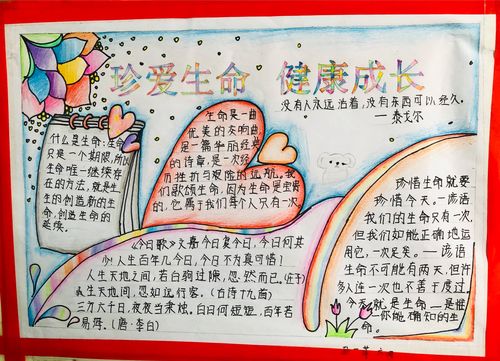 珍爱生命 健康成长
没有人永远活着,没有东西可以经久。
——泰戈尔
什么是生命:生命
只是一个期限,所以
生命唯一继续存
在的方法,就是生
生的创造新的生
命,创造生命的
延续。
生命是一曲
优美的交响曲,
是一篇华丽经典
的诗章,是一次经
历挫折与艰险的远航。我
们歌颂生命,因为生命是宝贵
的,它属于我们每个人只有一次
珍惜生命就要
珍惜今天。—谚语
我们的生命只有一次,
但我们如能正确地运
用它,一次足矣。——谚语
生命不可能有两天,但许
多人连一次也不善于度过。
今天就是生命—是唯
一你能确知的生
命。
《今日歌》文嘉今日复今日,今日何其
少!人生百年几今日,今日不为真可惜!
人生天地之间,若白驹过隙,忽然而已。(庄子)
人生天地间,忽如远行客,(古诗十九首)
三万六千日,夜夜当秉烛。白日何短短,百年若
易海。(唐·李白)